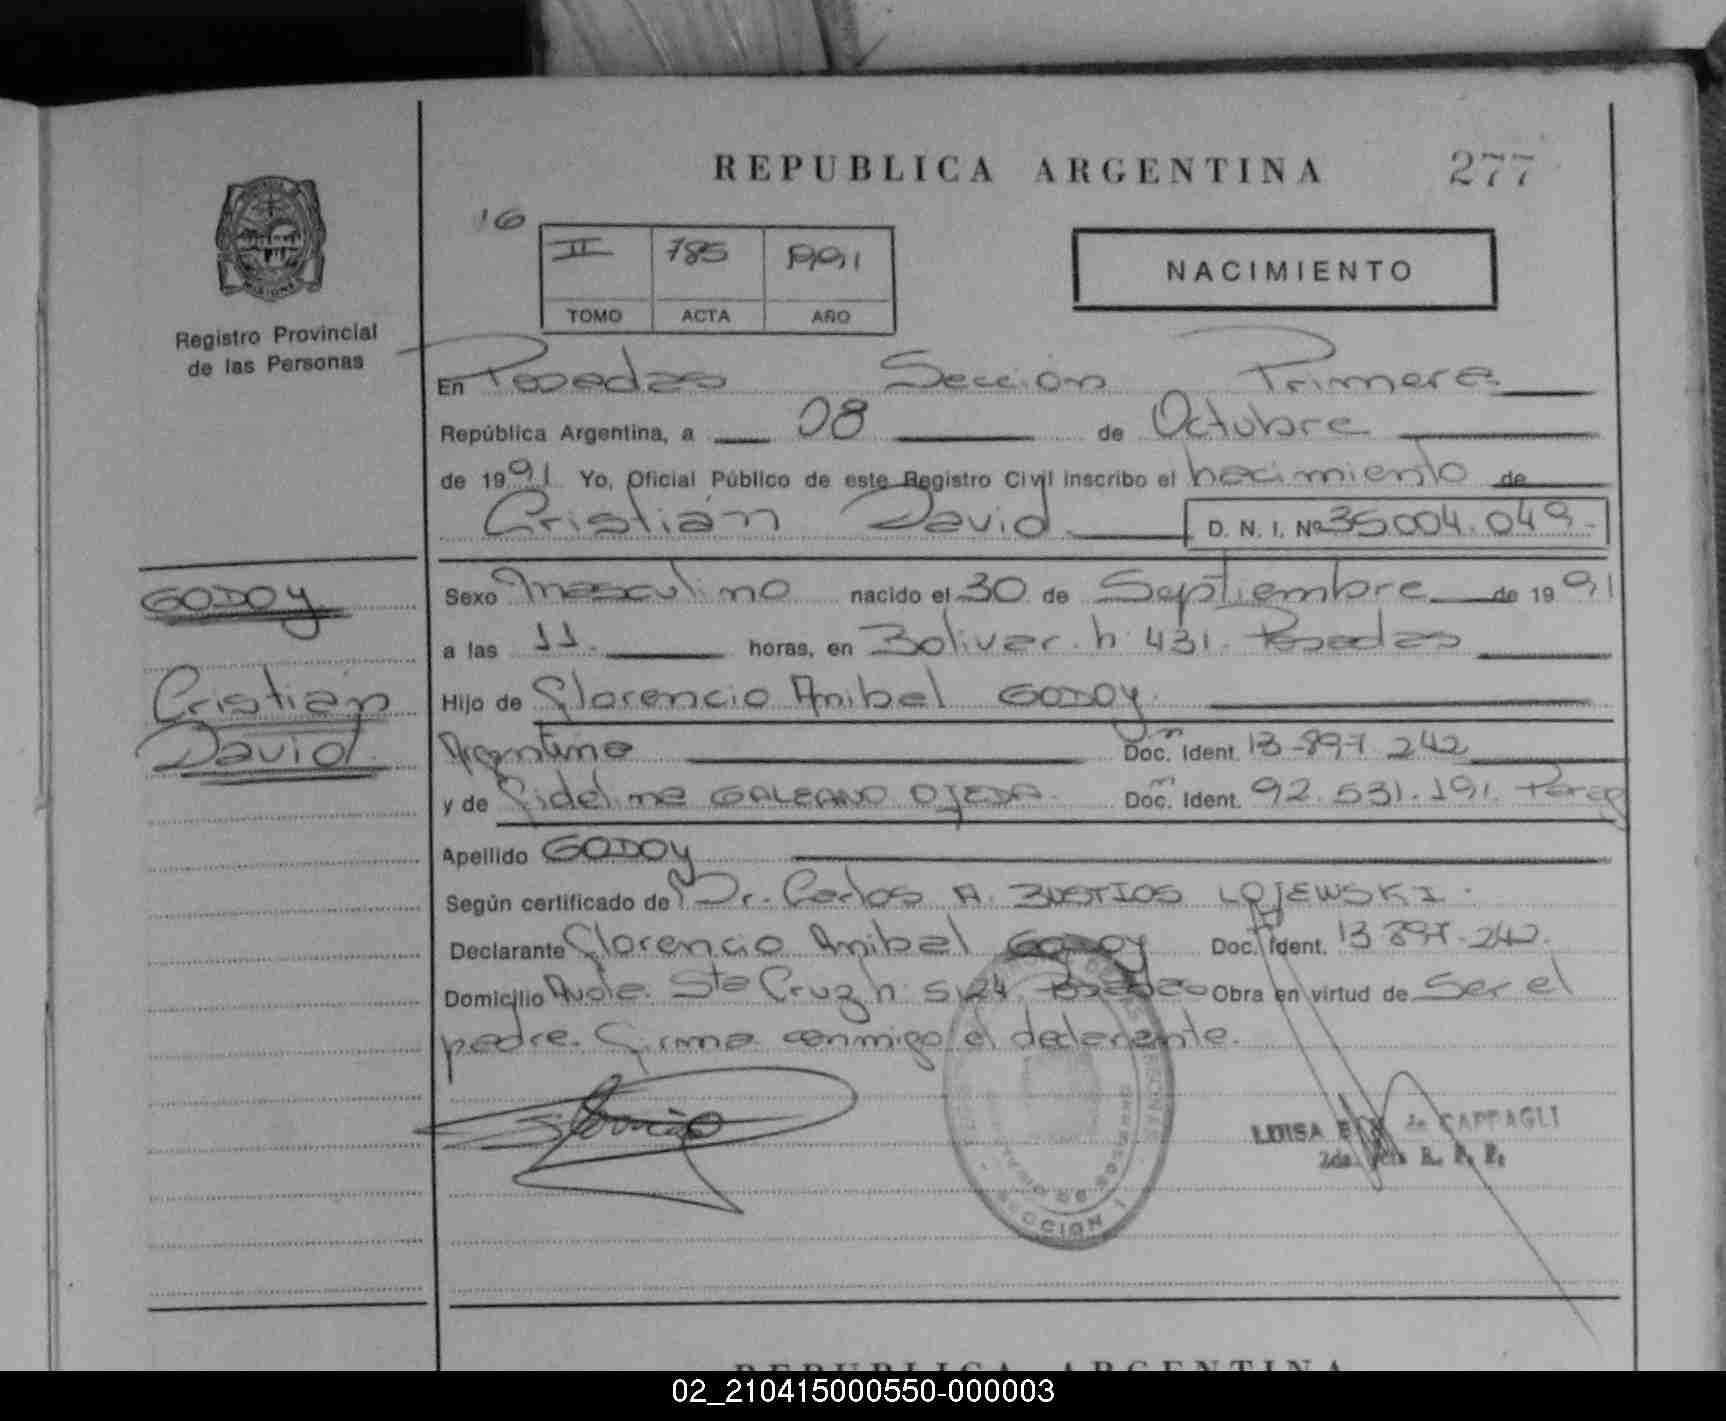 REPUBLICA ARGENTINA 277
16
II 785 1991
TOMO ACTA AÑO
NACIMIENTO
MISIONES
Registro Provincial
de las Personas
En Posadas Sección Primera
República Argentina, a 08 de Octubre
de 1991 Yo, Oficial Público de este Registro Civil inscribo el nacimiento de
Cristian David D. N. I. Nº 35.004.049.-
GODOY
Cristian
David.
Sexo Masculino nacido el 30 de Septiembre de 1991
a las 11. horas, en Bolivar. n 431. Posadas
Hijo de Florencio Anibal GODOY.
Argentino Doc. Ident. 13-897.242
y de Fidelina GALEANO OJEDA. Doc. Ident. 92.531.191.
Apellido GODOY
Según certificado de Dr. Carlos A. BUSTIOS LOJEWSKI.
Declarante Florencio Anibal GODOY Doc. Ident. 13 897.242.
Domicilio Avda. Sta Cruz n 5124. Posadas Obra en virtud de Ser el
padre. Firma conmigo el declarante.
LUISA de CAPPAGLI
2da. R. P. P.
SECCION 1
REPUBLICA ARGENTINA
02_210415000550-000003